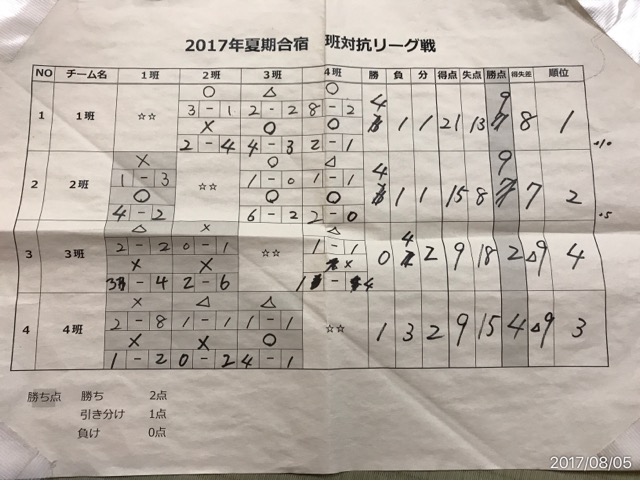 2017年夏期合宿 班対抗リーグ戦
NO チーム名 1班 2班 3班 4班 勝 負 分 得点 失点 勝点 得失差 順位
○ △ ○
3 - 1 2 - 2 8 - 2
1 1班 ☆☆ × ○ ○ 4 1 1 21 13 9 8 1
2 - 4 4 - 3 2 - 1
× ○ △
1 - 3 1 - 0 1 - 1
2 2班 ○ ☆☆ ○ ○ 4 1 1 15 8 9 7 2
4 - 2 6 - 2 2 - 0
△ × △
2 - 2 0 - 1 1 - 1
3 3班 × × ☆☆ × 0 4 2 9 18 2 △9 4
3 - 4 2 - 6 1 - 4
× △ △
2 - 8 1 - 1 1 - 1
4 4班 × × ○ ☆☆ 1 3 2 9 15 4 △9 3
1 - 2 0 - 2 4 - 1
勝ち点 勝ち 2点
引き分け 1点
負け 0点
2017/08/05